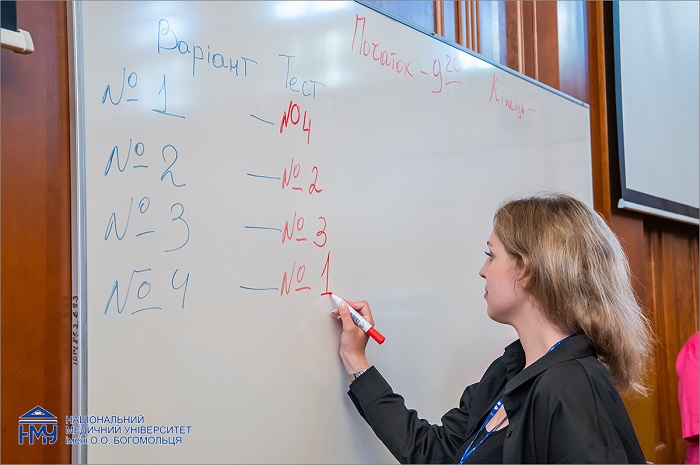 Варіант Тест
Початок - 9 20
Кінець -
№ 1 — № 4
№ 2 — № 2
№ 3 — № 3
№ 4 — № 1
НАЦІОНАЛЬНИЙ
МЕДИЧНИЙ УНІВЕРСИТЕТ
імені О.О. БОГОМОЛЬЦЯ